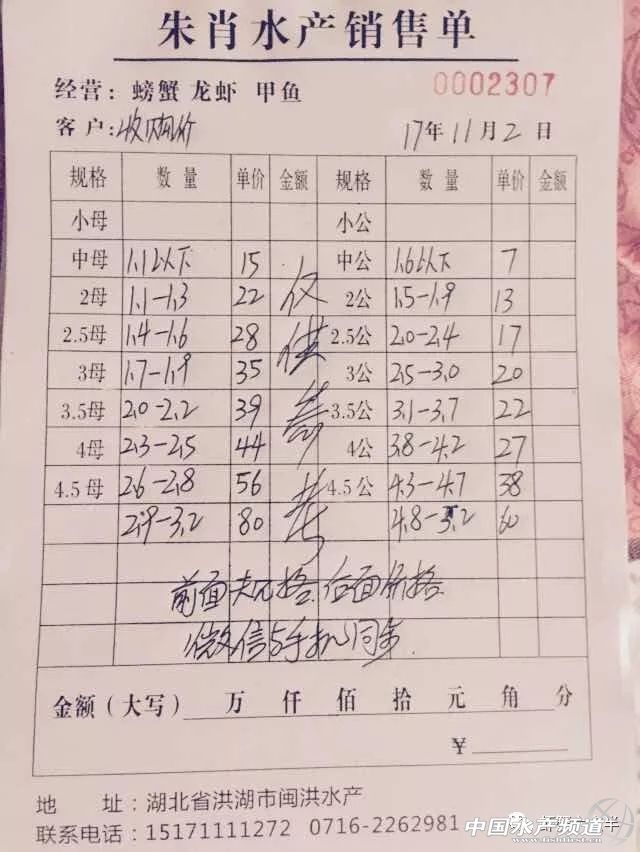 朱肖水产销售单
经营：螃蟹 龙虾 甲鱼 0002307
客户：收购价 17年11月2日
规格 数量 单价 金额 规格 数量 单价 金额
小母 小公
中母 1.1以下 15 中公 1.6以下 7
2母 1.1-1.3 22 2公 1.5-1.9 13
2.5母 1.4-1.6 28 2.5公 2.0-2.4 17
3母 1.7-1.9 35 3公 2.5-3.0 20
3.5母 2.0-2.2 39 3.5公 3.1-3.7 22
4母 2.3-2.5 44 4公 3.8-4.2 27
4.5母 2.6-2.8 56 4.5公 4.3-4.7 38
2.9-3.2 80 4.8-5.2 60
仅供参考
前面规格.后面价格.
微信与手机同步.
金额（大写） 万 仟 佰 拾 元 角 分
¥
地 址：湖北省洪湖市闽洪水产
联系电话：15171111272 0716-2262981
中国水产频道
www.fishfirst.cn